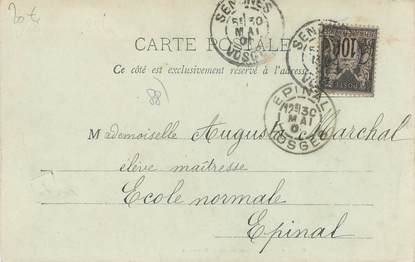 20 t
SENONES
5E 30
MAI
VOSGES
CARTE POSTALE
Ce côté est exclusivement réservé à l'adresse
10
POSTES
88
EPINAL
30
MAI
VOSGES
Mademoiselle Augusta Marchal
élève maîtresse
Ecole normale
Epinal